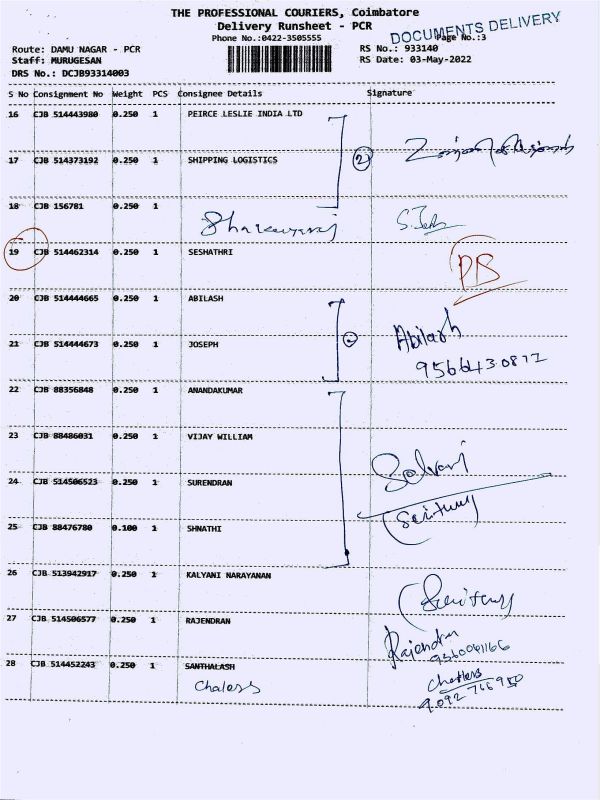 THE PROFESSIONAL COURIERS, Coimbatore
Delivery Runsheet - PCR
DOCUMENTS DELIVERY
Phone No.:0422-3505555
Page No.:3
Route: DAMU NAGAR - PCR
RS No.: 933140
Staff: MURUGESAN
RS Date: 03-May-2022
DRS No.: DCJB93314003
S No Consignment No Weight PCS Consignee Details Signature
16 CJB 514443980 0.250 1 PEIRCE LESLIE INDIA LTD
17 CJB 514373192 0.250 1 SHIPPING LOGISTICS
2
18 CJB 156781 0.250 1
19 CJB 514462314 0.250 1 SESHATHRI
20 CJB 514444665 0.250 1 ABILASH
Abilash
21 CJB 514444673 0.250 1 JOSEPH
22 CJB 88356848 0.250 1 ANANDAKUMAR
23 CJB 88486031 0.250 1 VIJAY WILLIAM
24 CJB 514506523 0.250 1 SURENDRAN
25 CJB 88476780 0.100 1 SHNATHI
26 CJB 513942917 0.250 1 KALYANI NARAYANAN
27 CJB 514506577 0.250 1 RAJENDRAN
Rajendran
28 CJB 514452243 0.250 1 SANTHALASH